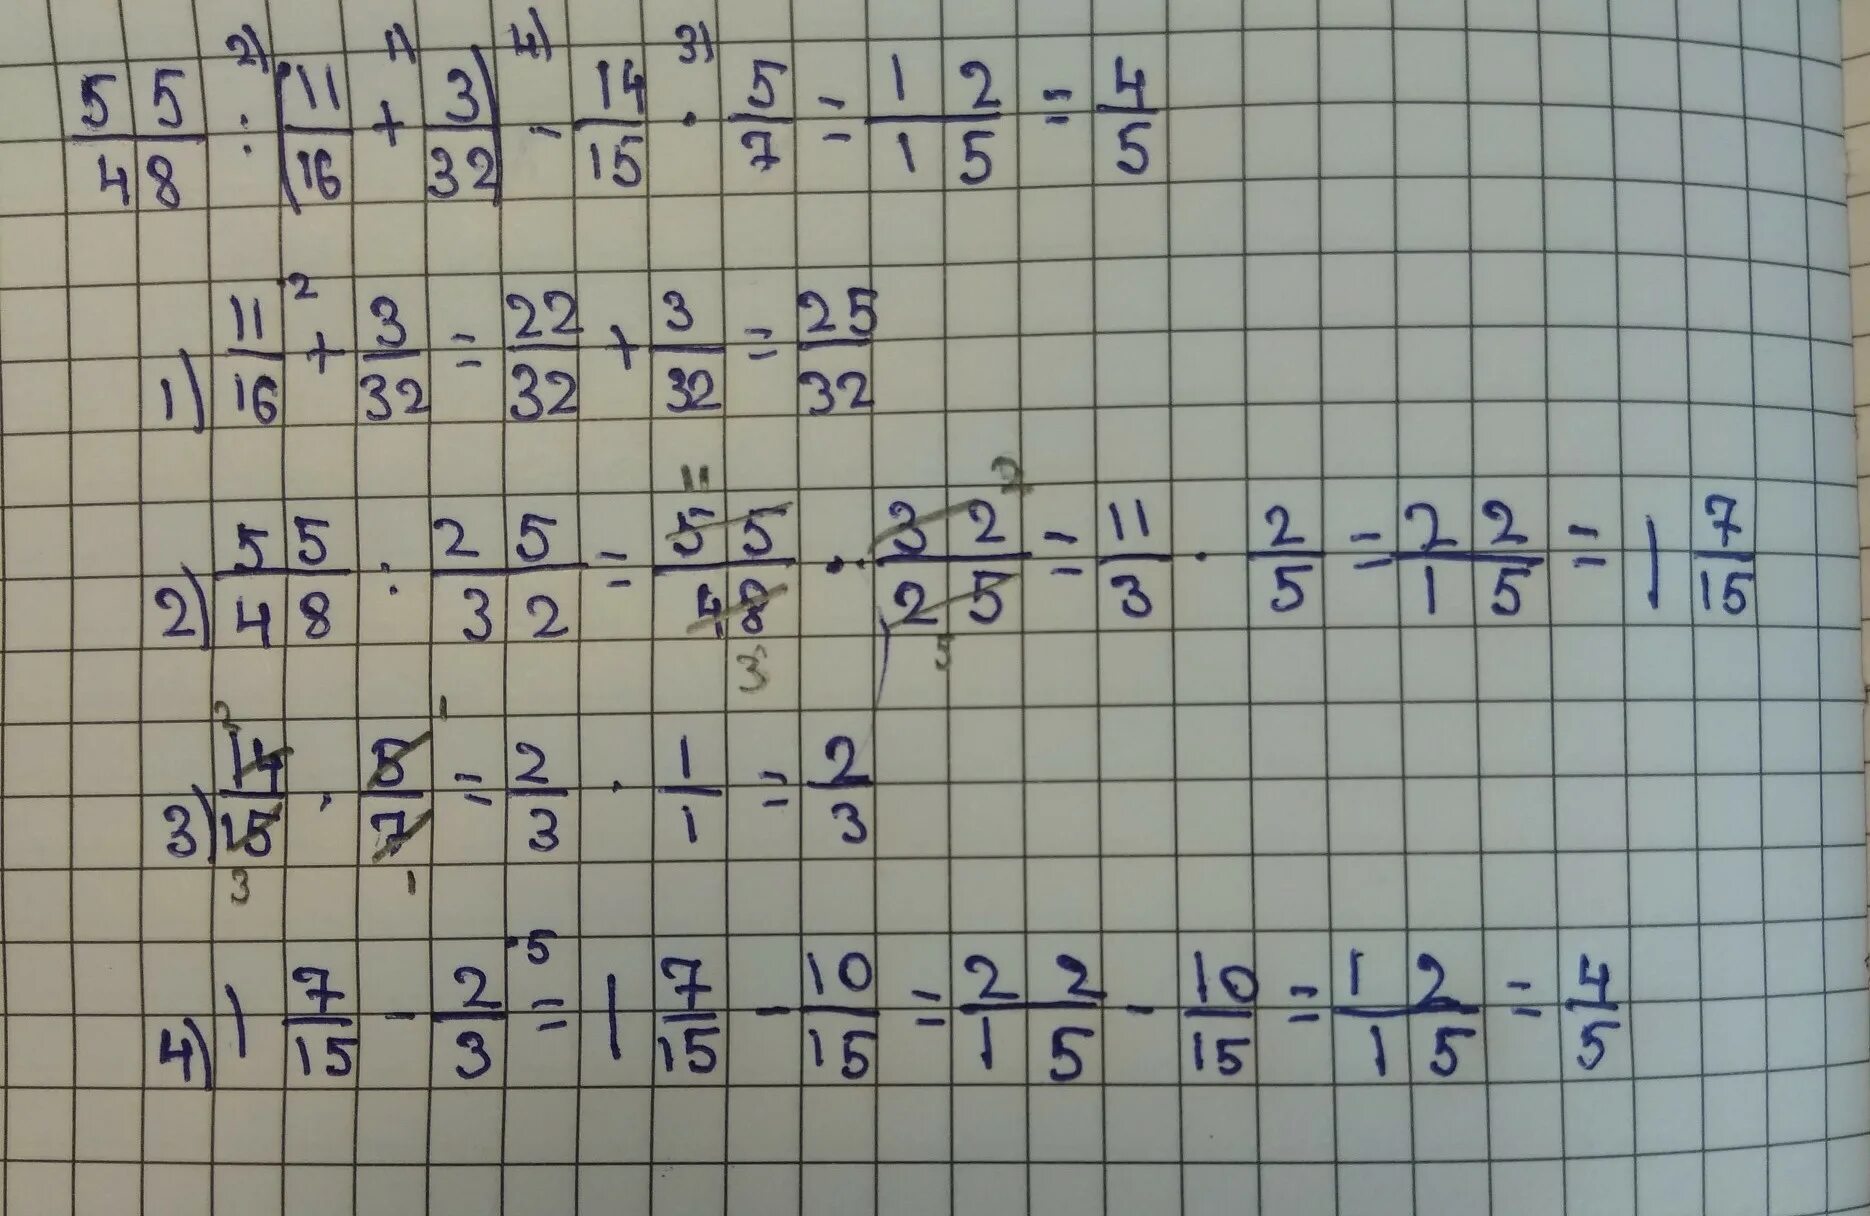 55/48 2) : (11/16 1) + 3/32) 4) - 14/15 3) · 5/7 = 12/15 = 4/5
1) 11/16 ·2 + 3/32 = 22/32 + 3/32 = 25/32
2) 55/48 : 25/32 = 55 11/48 3 · 32 2/25 5 = 11/3 · 2/5 = 22/15 = 1 7/15
3) 14 2/15 3 · 5 1/7 1 = 2/3 · 1/1 = 2/3
4) 1 7/15 - 2/3 ·5 = 1 7/15 - 10/15 = 22/15 - 10/15 = 12/15 = 4/5